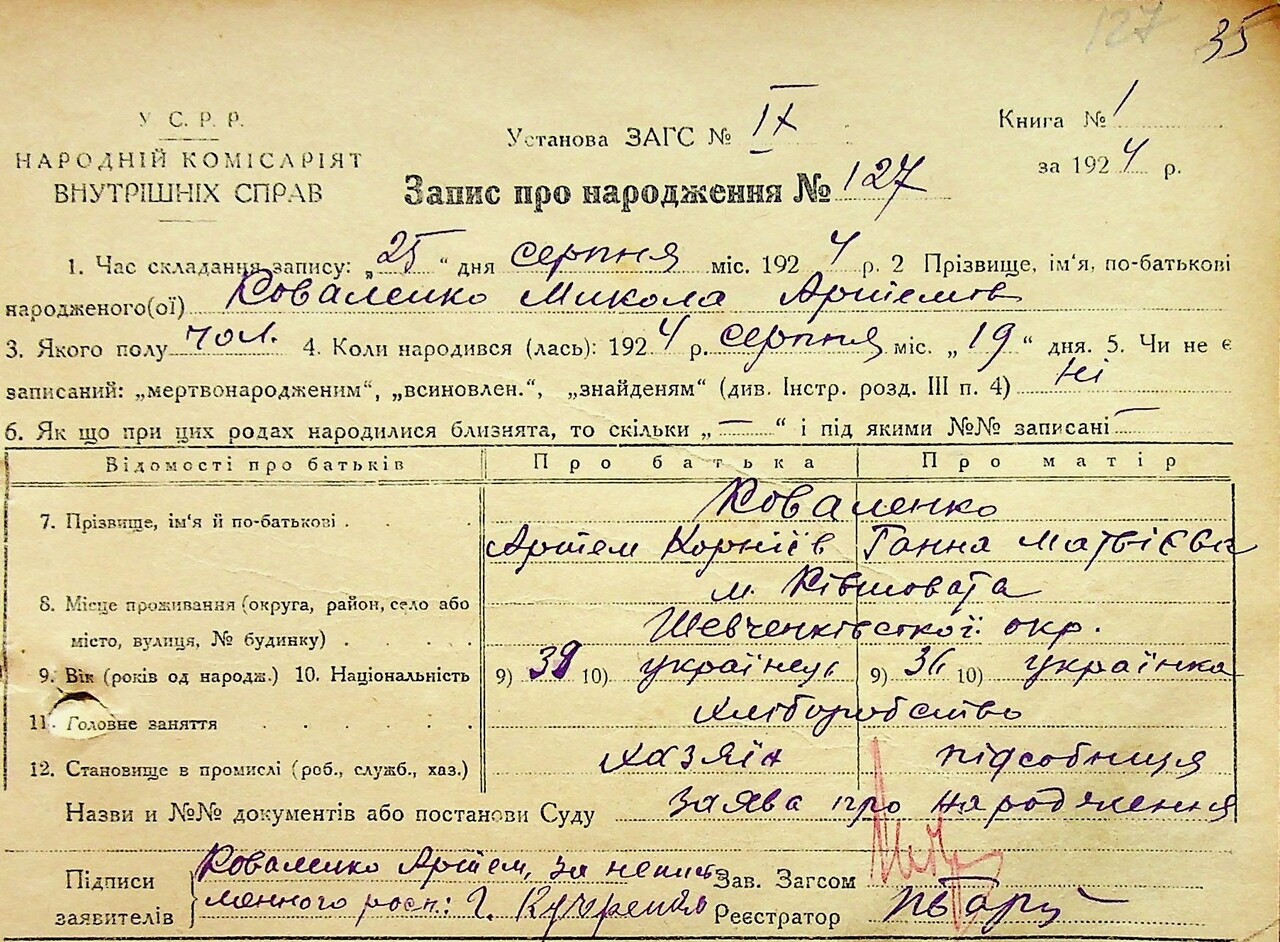 127 35
У С. Р. Р.
НАРОДНІЙ КОМІСАРІЯТ
ВНУТРІШНІХ СПРАВ
Установа ЗАГС № IX
Книга № 1
за 1924 р.
Запис про народження № 127
1. Час складання запису: „25“ дня серпня міс. 1924 р. 2 Прізвище, ім‘я, по-батькові
народженого(ої) Коваленко Микола Артемів
3. Якого полу чол. 4. Коли народився (лась): 1924 р. серпня міс. „19“ дня. 5. Чи не є
записаний: „мертвонародженим“, „всиновлен.“, „знайденям“ (див. Інстр. розд. III п. 4) ні
6. Як що при цих родах народилися близнята, то скільки „—“ і під якими №№ записані —
Відомості про батьків Про батька Про матір
7. Прізвище, ім‘я й по-батькові . Коваленко
Артем Корніїв Ганна Матвієва
8. Місце проживання (округа, район, село або м. Ківшовата
місто, вулиця, № будинку) . Шевченківсткої окр.
9. Вік (років од народж.) 10. Національність 9) 39 10) українець 9) 36 10) українка
11. Головне заняття хліборобство
12. Становище в промислі (роб., служб., хаз.) хазяїн підсобниця
Назви и №№ документів або постанови Суду заява про народження
Підписи заявителів
Коваленко Артем, за непись
менного росп.: Г. Кучеренко
Зав. Загсом
Реєстратор